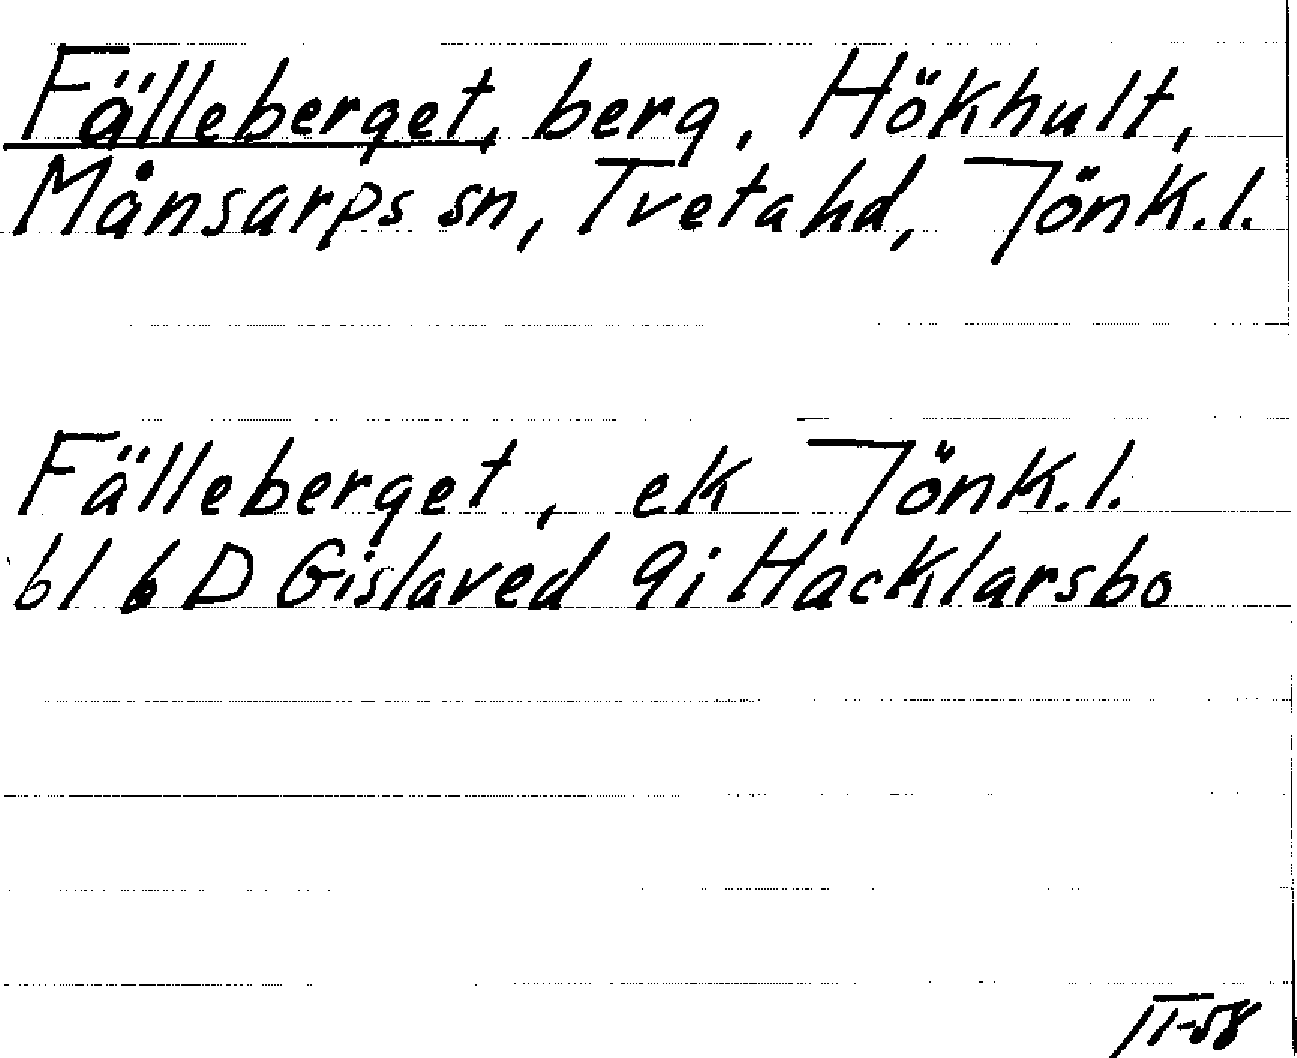 Fälleberget, berg, Hökhult,
Månsarps sn, Tveta hd, Jönk.l.
Fälleberget, ek Jönk.l.
bl 6 D Gislaved 9i Hacklarsbo